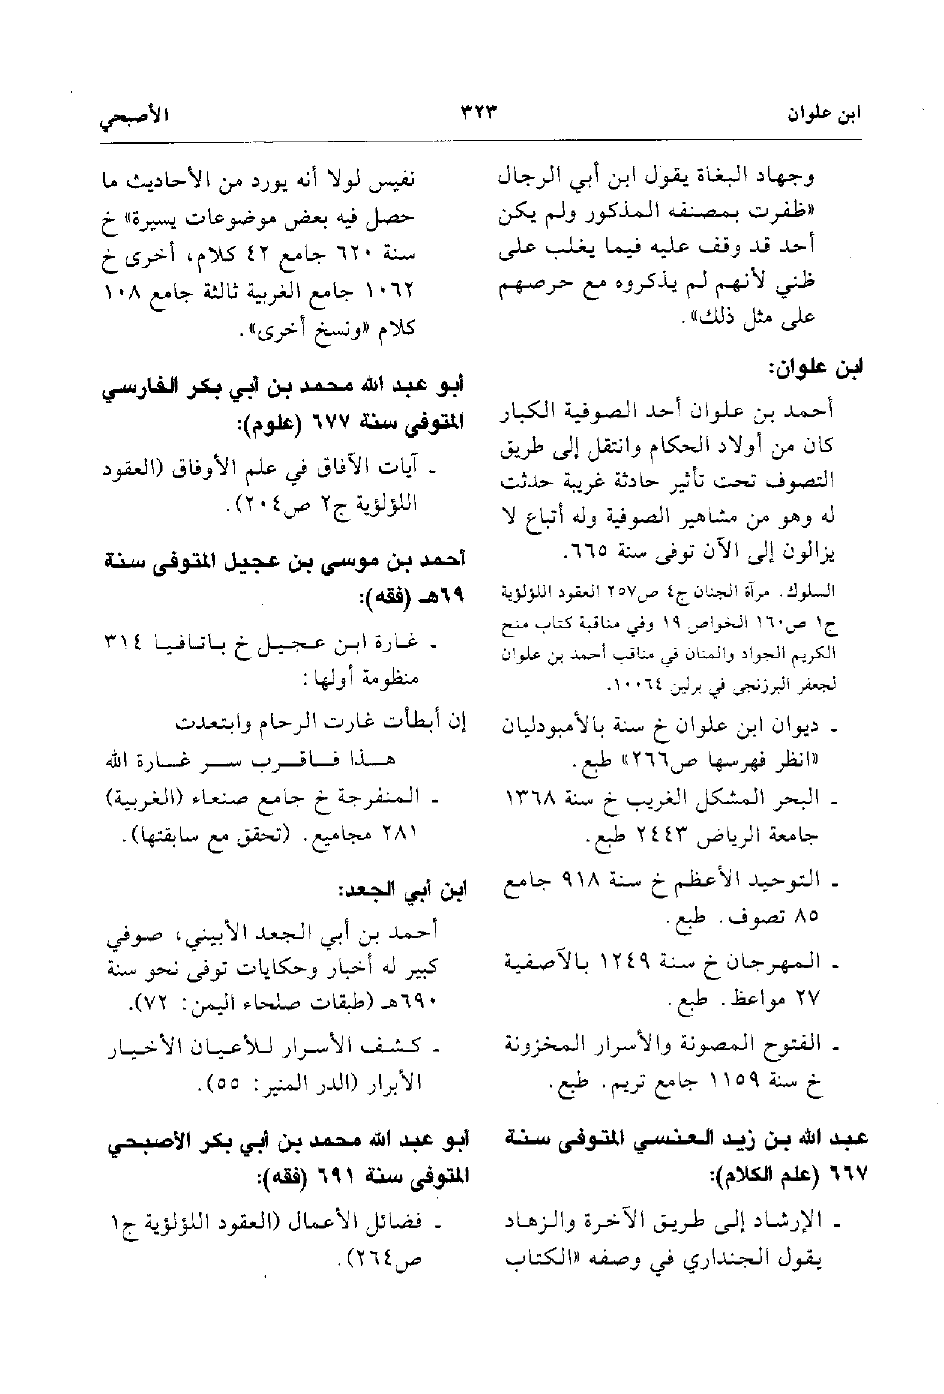 ابن علوان
٣٢٣
الأصبحي
وجهاد البغاة يقول ابن أبي الرجال
«ظفرت بمصنفه المذكور ولم يكن
أحد قد وقف عليه فيما يغلب على
ظني لأنهم لم يذكروه مع حرصهم
على مثل ذلك».
ابن علوان:
أحمد بن علوان أحد الصوفية الكبار
كان من أولاد الحكام وانتقل إلى طريق
التصوف تحت تأثير حادثة غريبة حدثت
له وهو من مشاهير الصوفية وله أتباع لا
يزالون إلى الآن توفى سنة ٦٦٥.
السلوك. مرآة الجنان ج٤ ص٢٥٧ العقود اللؤلؤية
ج١ ص١٦٠ الخواص ١٩ وفي مناقبة كتاب منح
الكريم الجواد والمنان في مناقب أحمد بن علوان
لجعفر البرزنجي في برلين ١٠٠٦٤.
- ديوان ابن علوان خ سنة بالأمبودليان
«انظر فهرسها ص٢٦٦» طبع.
- البحر المشكل الغريب خ سنة ١٣٦٨
جامعة الرياض ٢٤٤٣ طبع.
- التوحيد الأعظم خ سنة ٩١٨ جامع
٨٥ تصوف. طبع.
- المهرجان خ سنة ١٢٤٩ بالآصفية
٢٧ مواعظ. طبع.
- الفتوح المصونة والأسرار المخزونة
خ سنة ١١٥٩ جامع تريم. طبع.
عبد الله بن زيد العنسي المتوفى سنة
٦٦٧ (علم الكلام):
- الإرشاد إلى طريق الآخرة والزهاد
يقول الجنداري في وصفه «الكتاب
نفيس لولا أنه يورد من الأحاديث ما
حصل فيه بعض موضوعات يسيرة» خ
سنة ٦٢٠ جامع ٤٢ كلام، أخرى خ
١٠٦٢ جامع الغربية ثالثة جامع ١٠٨
كلام «ونسخ أخرى».
أبو عبد الله محمد بن أبي بكر الفارسي
المتوفى سنة ٦٧٧ (علوم):
- آيات الآفاق في علم الأوفاق (العقود
اللؤلؤية ج٢ ص٢٠٤).
أحمد بن موسى بن عجيل المتوفى سنة
٦٩هـ (فقه):
- غارة ابن عجيل خ باتافيا ٣١٤
منظومة أولها:
إن أبطأت غارت الرحام وابتعدت
هذا فاقرب سر غارة الله
- المنفرجة خ جامع صنعاء (الغربية)
٢٨١ مجاميع. (تحقق مع سابقتها).
ابن أبي الجعد:
أحمد بن أبي الجعد الأبيني، صوفي
كبير له أخبار وحكايات توفى نحو سنة
٦٩٠هـ (طبقات صلحاء اليمن: ٧٢).
- كشف الأسرار للأعيان الأخيار
الأبرار (الدر المنير: ٥٥).
أبو عبد الله محمد بن أبي بكر الأصبحي
المتوفى سنة ٦٩١ (فقه):
- فضائل الأعمال (العقود اللؤلؤية ج١
ص٢٦٤).